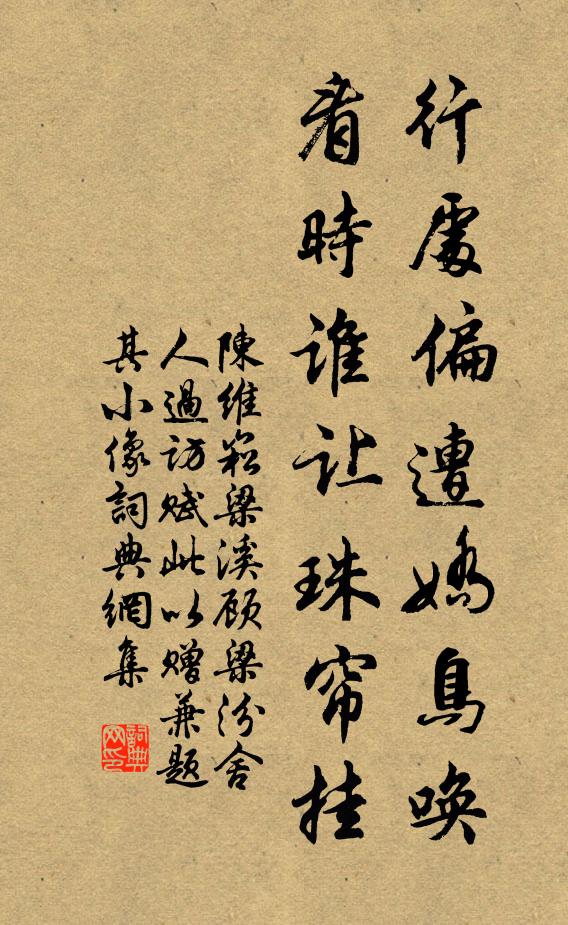 行處偏遭嬌鳥喚
看時誰让珠帘挂
陳維崧梁溪顧梁汾舍
人過訪賦此以贈兼題
其小像詞典網集
詞典网印